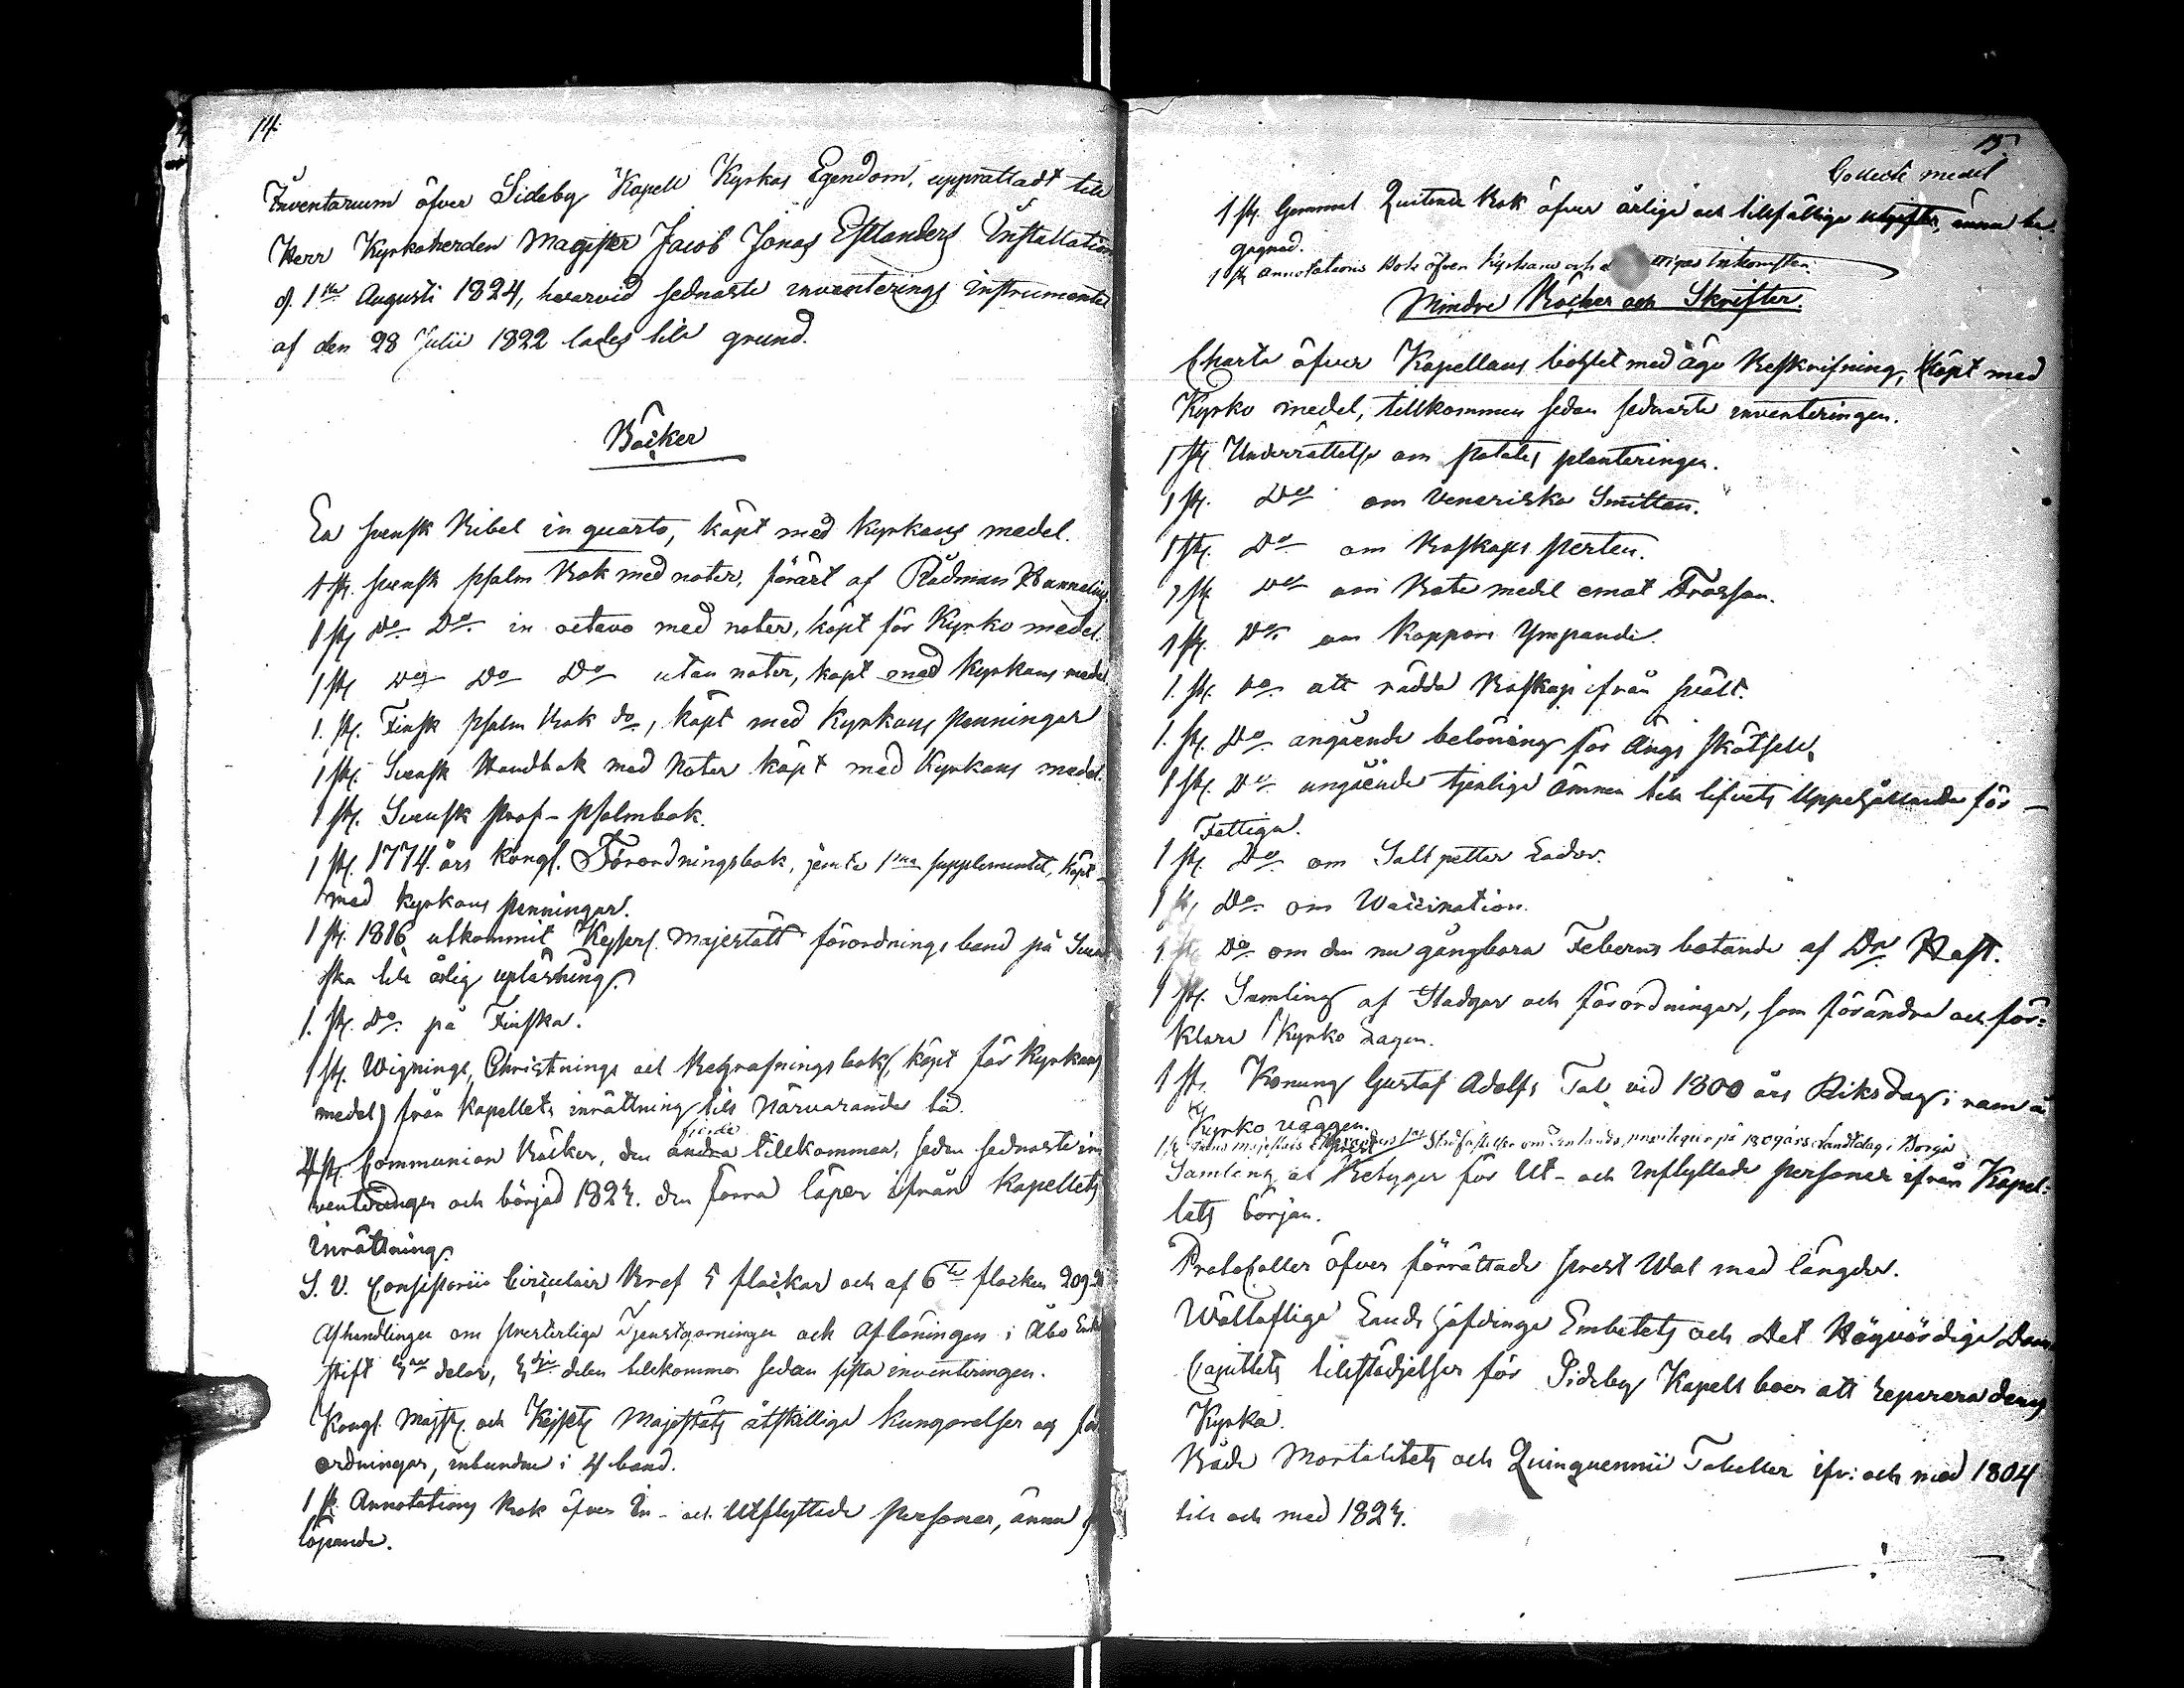 14.
Inventarium öfver Sideby Kapell Kyrkas Egendom, upprättadt till
Herr Kyrkoherden Magister Jacob Jonas Estlanders Installation
d. 1sta Augusti 1824, hvarvid sednaste inventerings instrumentet
af den 28 Julii 1822 lades till grund.
Böcker
En svensk Bibel in quarto, köpt med Kyrkans medel.
1 st. svensk psalm Bok med noter, förärt af Rådman
1 st. Do Do in octavo med noter, köpt för Kyrko medel
1 st. Do Do Do utan noter, köpt med Kyrkans medel
1. st. Finsk psalm Bok do, köpt med Kyrkans penningar
1 st. Svensk Handbok med Noter köpt med Kyrkans medel.
1 st. Svensk Prof-psalmbok.
1 st. 1774 års Kongl. Förordningsbok, jemte 1sta supplementet, köpt
med kyrkans penningar.
1 st. 1816 utkommit Kejserl. Majestätt förordnings band på Sven
ska till årlig upläsning.
1. st. Do på Finska.
1 st. Wignings, Christnings och Begrafnings bok, (köpt för Kyrkans
medel) från Kapellets inrättning till Närvarande tid.
fjerde
4 st. Communion Böcker, den andra tillkommen, sedan sednaste in
venteringen och börjad 1824. den förra löper ifrån Kapellets
Inrättning.
S. V. Consistorii Circulair Bref 5 flockar och af 6te flocken
Afhandlingar om presterliga Tjenstgörningar och Aflöningen i Åbo Erke
stift delar, delen tillkommen sedan sista inventeringen.
Kongl. Majsts. och Kejsts Majestäts åtskilliga kungörelser og för
ordningar, inbundne i 4 band.
1 st. Annotations Bok öfver In- och Utflyttade personer, ännu
löpande.
15.
Collect medel
1 st. Gammal Quittence Bok öfver årliga och tillfällige utgifter, ännu be
gagnad.
1 st. Annotations Bok öfver Kyrkans och Inkomster.
Mindre Böcker och Skrifter.
Charta öfver Kapellans bohlet med ägo Beskrifning, köpt med
Kyrko medel, tillkommen sedan sednaste inventeringen.
1 st. Underrättelse om potates planteringen.
1 st. Do om Veneriska Smittan.
1 st. Do om Boskaps pesten.
1 st. Do om Bote medel emot Frossan.
1 st. Do om Koppors Ympande.
1. st. Do att rädda Boskap ifrån svält.
1. st. Do angående belöning för Ängs skötsell.
1 st. Do angående tjenliga Ämnen till lifvets Uppehållande för
Fattiga.
1 st. Do om Saltpetter Lador.
1 st. Do om Waccination.
1 st. Do om den nu gångbara Feberns botande af Dr Haft.
1 st. Samling af Stadgar och förordningar, som förändra och för-
klara Kyrko Lagen.
1 st. Konung Gustaf Adolfs Tal vid 1800 års Riksdag i ram å
Kyrko väggen.
1 st. Hans Majestäts Alexanders 1sta Stadfästelse om Landets privilegier på 1809 års Landtdag i Borgå
Samling af Betyger för Ut- och Inflyttade personer ifrån Kapel-
lets början.
Protocoller öfver förrättade prest Wal med längder.
Wällofliga Lands höfdinge Embetets och Det Högvördiga Dom
Capitlets tillstädjelser för Sideby Kapells boer att reparera deras
Kyrka.
Både Mortalitets och Quinquennii Tabeller ifr: och med 1804
till och med 1824.